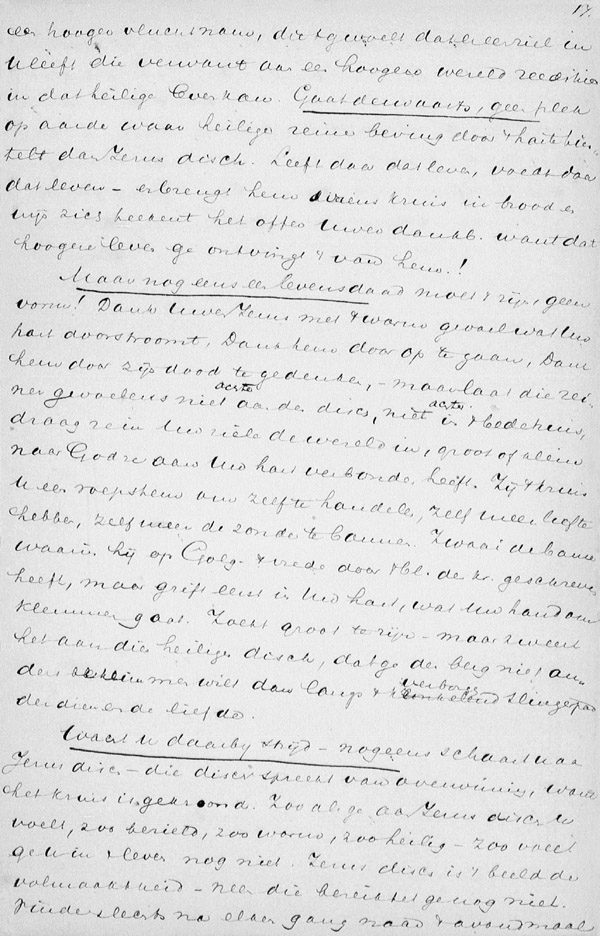 17.
een hooger vlucht nam, die 't gevoelt dat er een ziel in
U leeft die verwant aan een hoogere wereld reeds hier
in dat heilige kan. Gaat derwaarts, geen plek
op aarde waar heilige reine beving door 't harte
dan Jezus disch. Leeft daar dat leven, voedt daar
dat leven – en brengt hem wiens kruis in brood en
wijn zich het offer Uwer dankb. want dat
hoogere leven ge ontvingt 't van hem.!
Maar nog eens een levensdaad moet 't zijn, geen
vorm! Dankt Uwen Jezus met 't warme gevoel wat Uw
hart doorstroomt, Dankt hem door op te gaan, Dankt
hem door zijn dood te gedenken, – maar laat die rei-
ner gevoelens niet achter aan den disch, niet achter in 't bedehuis,
draag ze in Uw ziel de wereld in, groot of klein
naar God ze aan Uw hart verbonden heeft. Zij 't kruis
U een roepstem om zelf te handelen, zelf meer liefde
hebben, zelf meer de zonde te bannen. Zwaai de banier
waarin hij op Golg. 't vrede door 't bl. des kr. geschreven
heeft, maar grift eerst in Uw hart, wat Uw hand om-
klemmen gaat. Zoekt groot te zijn – maar zweert
het aan dien heiligen disch, dat ge den berg niet an-
ders wilt dan langs 't verborgen slingerpad
der dienende liefde.
Wacht U daarbij strijd – nog eens schaart U aan
Jezus disch – die disch spreekt van overwinning, want
het kruis is gekroond. Zoo als ge aan Jezus disch U
voelt, zoo bereid, zoo warm, zoo heilig – zoo voelt
ge U in 't leven nog niet. Jezus disch is 't beeld der
volmaaktheid – neen die bereikt ge nog niet.
slechts na elken gang naar 't avondmaal